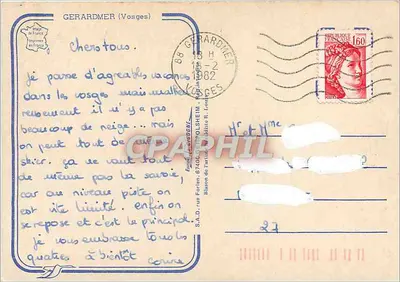 GERARDMER (Vosges)
Chers tous.
Je passe d'agréables vacances
dans les vosges mais malheu
reusement il n'y a pas
beaucoup de neige... mais on
peut tout de même
skier. ça ne vaut tout
de même pas la savoie,
car au niveau piste on
est vite limité. enfin on
se repose et c'est le principal.
je vous embrasse tous les
quatres à bientôt
corine
88 GERARDMER
18 H
-2
1982
VOSGES
REPUBLIQUE FRANCAISE
1,60
Mr et Mme
27
CPAPHIL